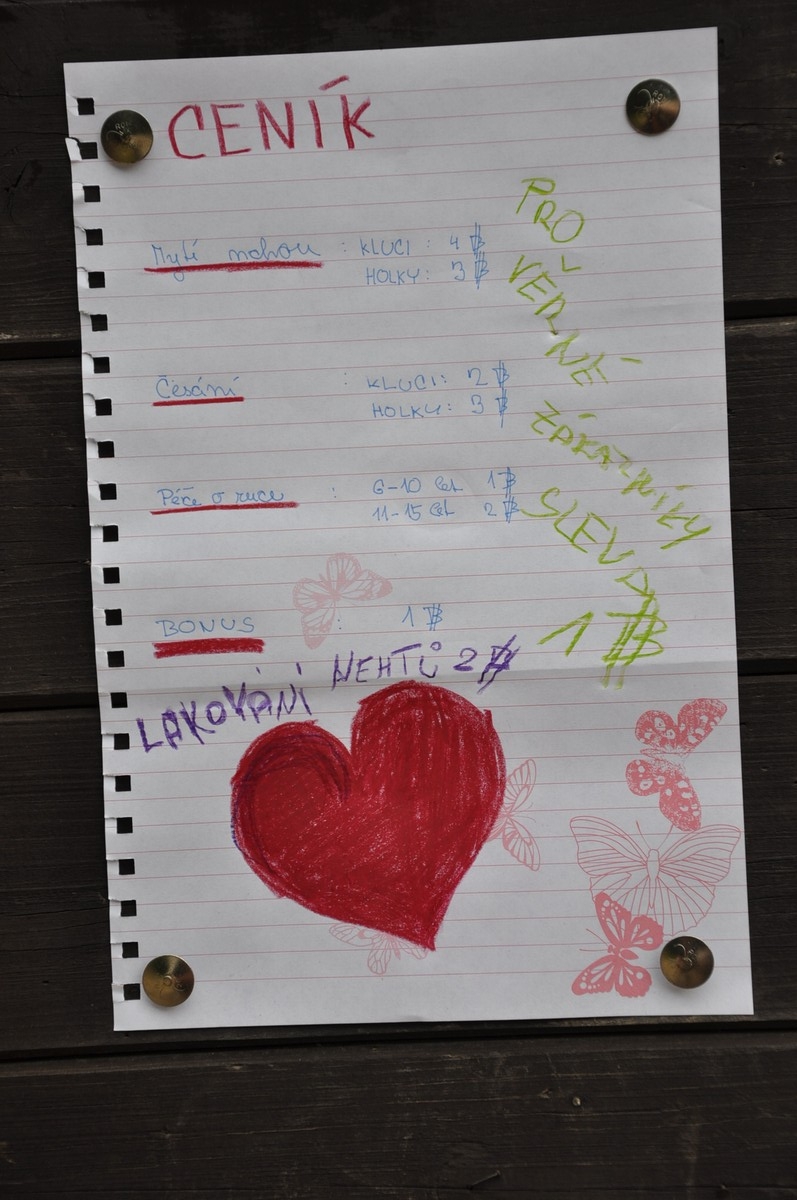 CENÍK
Mytí nohou : KLUCI : 4 ₿
HOLKY: 3 ₿
Česání : KLUCI: 2 ₿
HOLKY: 3 ₿
Péče o ruce : 6-10 let 1 ₿
11-15 let 2 ₿
BONUS : 1 ₿
LAKOVÁNÍ NEHTŮ 2 ₿
PRO
VĚRNÉ
ZÁKAZNÍKY
SLEVA
1 ₿